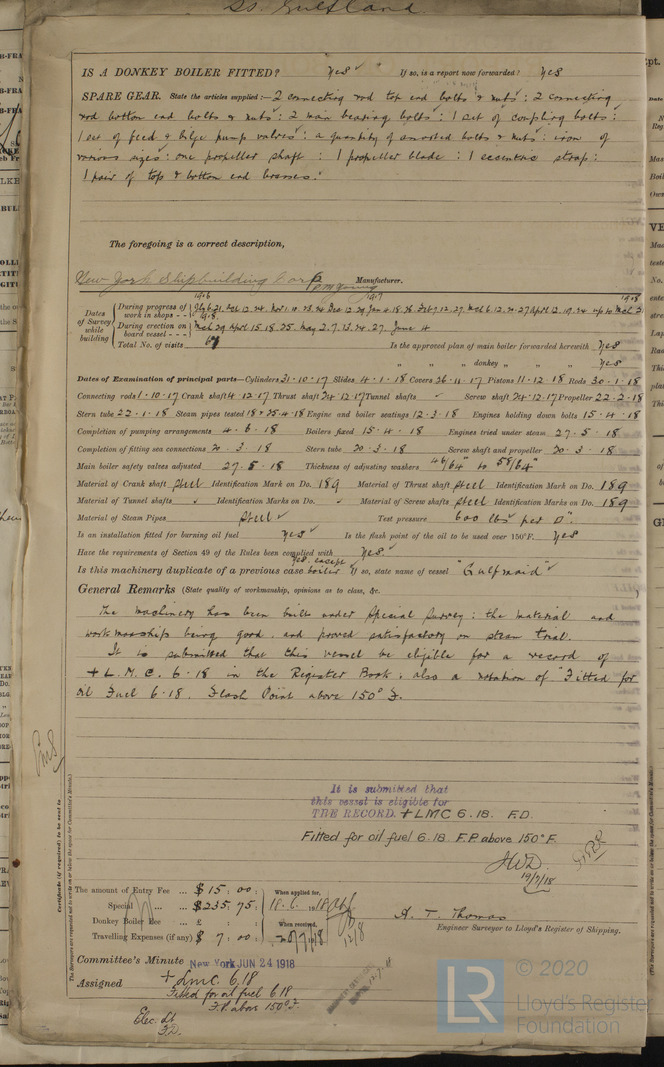 SS. Gulfland
IS A DONKEY BOILER FITTED? Yes If so, is a report now forwarded? Yes
SPARE GEAR. State the articles supplied:— 2 connecting rod top end bolts & nuts: 2 connecting
rod bottom end bolts & nuts: 2 main bearing bolts: 1 set of coupling bolts:
1 set of feed & bilge pump valves: a quantity of assorted bolts & nuts: iron of
various sizes: one propeller shaft: 1 propeller blade: 1 eccentric strap:
1 pair of top & bottom end brasses.
The foregoing is a correct description,
New York Shipbuilding Corp Manufacturer.
1916 1917 1918
Dates of Survey while building
During progress of work in shops - -
During erection on board vessel - - - Mch 29 April 15.18.25. May 2.7.13.24.27. June 4
Total No. of visits Is the approved plan of main boiler forwarded herewith Yes
" " " donkey " " " Yes
Dates of Examination of principal parts—Cylinders 31.10.17 Slides 4.1.18 Covers 26.11.17 Pistons 11.12.18 Rods 30.1.18
Connecting rods 1.10.17 Crank shaft 4.12.17 Thrust shaft 24.12.17 Tunnel shafts - Screw shaft 24.12.17 Propeller 22.2.18
Stern tube 22.1.18 Steam pipes tested 18 & 25.4.18 Engine and boiler seatings 12.3.18 Engines holding down bolts 15.4.18
Completion of pumping arrangements 4.6.18 Boilers fixed 15.4.18 Engines tried under steam 27.5.18
Completion of fitting sea connections 20.3.18 Stern tube 20.3.18 Screw shaft and propeller 20.3.18
Main boiler safety valves adjusted 27.5.18 Thickness of adjusting washers 46/64" to 58/64"
Material of Crank shaft Steel Identification Mark on Do. 189 Material of Thrust shaft Steel Identification Mark on Do. 189
Material of Tunnel shafts Identification Marks on Do. Material of Screw shafts Steel Identification Marks on Do. 189
Material of Steam Pipes Steel Test pressure 600 lbs per □"
Is an installation fitted for burning oil fuel Yes Is the flash point of the oil to be used over 150°F. Yes
Have the requirements of Section 49 of the Rules been complied with Yes
Is this machinery duplicate of a previous case Yes. except boiler If so, state name of vessel "Gulfmaid"
General Remarks (State quality of workmanship, opinions as to class, &c.
The machinery has been built under Special Survey: the material and
workmanship being good, and proved satisfactory on steam trial.
It is submitted that this vessel be eligible for a record of
+ L.M.C. 6.18 in the Register Book: also a notation of "Fitted for
oil Fuel 6.18. Flash Point above 150° F.
It is submitted that
this vessel is eligible for
THE RECORD. + LMC 6.18. F.D.
Fitted for oil fuel 6.18. F.P. above 150°F.
JWD.
19/7/18
The amount of Entry Fee ... $ 15.00 When applied for,
Special ... $235.75 18.6.1918
Donkey Boiler Fee ... £ When received,
Travelling Expenses (if any) $ 7.00
A. T. Thomas
Engineer Surveyor to Lloyd's Register of Shipping.
Committee's Minute New York JUN 24 1918
Assigned + LMC 6.18
Fitted for oil fuel 6.18
F.P. above 150°F.
Elec. Lt
F.D.
Certificate (if required) to be sent to
(The Surveyors are requested not to write on or below the space for Committee's Minute.)
LR © 2020
Lloyd's Register
Foundation